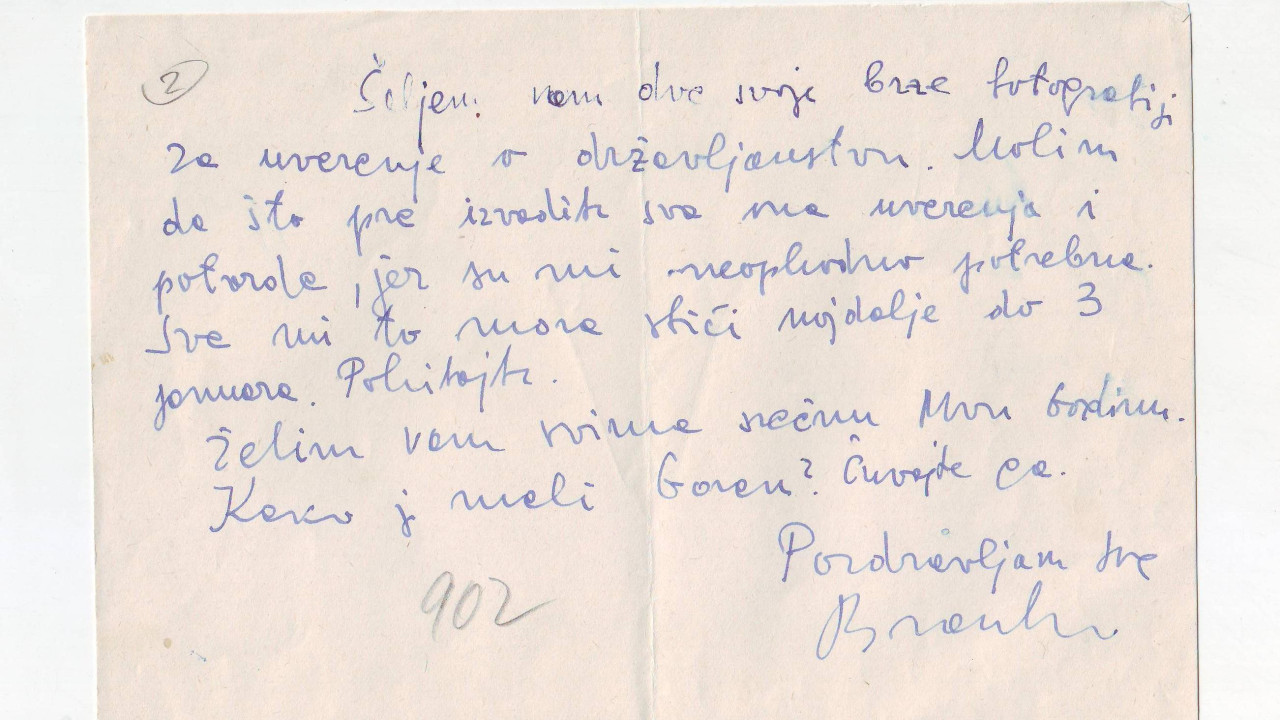 2
Šaljem vam dve svoje brze fotografije
za uverenje o državljanstvu. Molim
da što pre izvadite sva ma uverenja i
potvrde, jer su mi neophodno potrebna.
Sve mi to mora stići najdalje do 3
januara. Pohitajte.
Želim vam svima srećnu Novu Godinu.
Kako je mali Goran? Čuvajte ga.
Pozdravljam sve
Branko
902